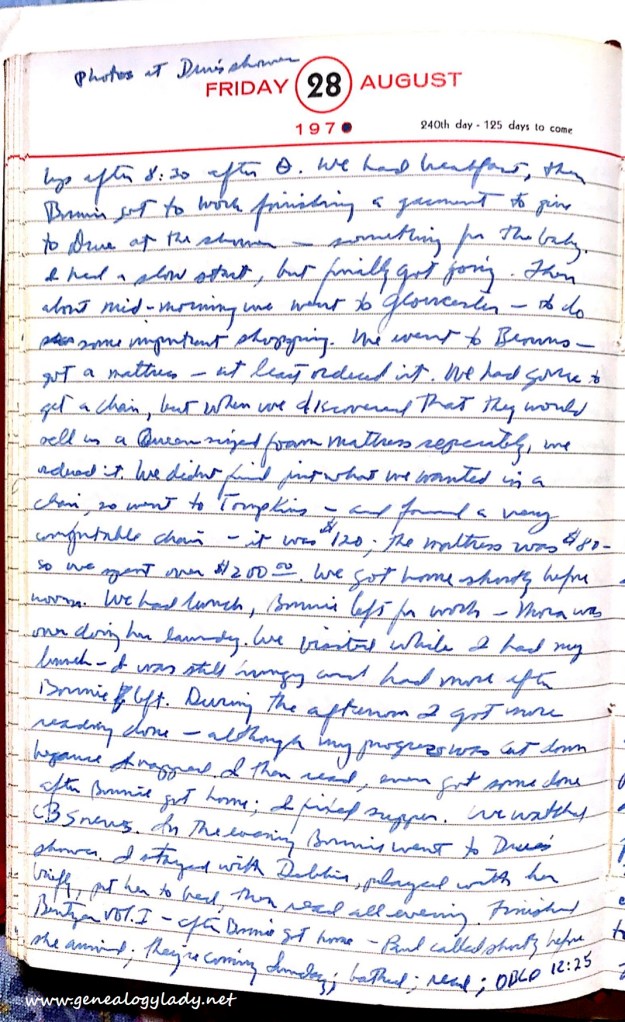 Photos at Dru's shower
FRIDAY 28 AUGUST
197
240th day - 125 days to come
up after 8:30 after θ. We had breakfast, then
Bonnie got to work finishing a garment to give
to Drue at the shower — something for the baby.
I had a slow start, but finally got going. Then
about mid-morning we went to Gloucester — to do
some important shopping. We went to Browns —
got a mattress — at least ordered it. We had gone to
get a chair, but when we discovered that they would
sell us a Queen sized foam mattress seperately, we
ordered it. We didn't find just what we wanted in a
chair, so went to Tompkins — and found a very
comfortable chair — it was $120; the mattress was $80 —
so we spent over $200.00. We got home shortly before
noon. We had lunch, Bonnie left for work — Mora was
over doing her laundry. We visited while I had my
lunch — I was still hungry and had more after
Bonnie left. During the afternoon I got more
reading done — although my progress was cut down
because I napped. I then read, even got some done
after Bonnie got home; I fixed supper. We watched
CBS news. In the evening Bonnie went to Drue's
shower. I stayed with Debbie, played with her
briefly, put her to bed, then read all evening. Finished
Vol. I — after Bonnie got home — Paul called shortly before
she arrived; they're coming Sunday; bathed; read; 12:25
www.genealogylady.net